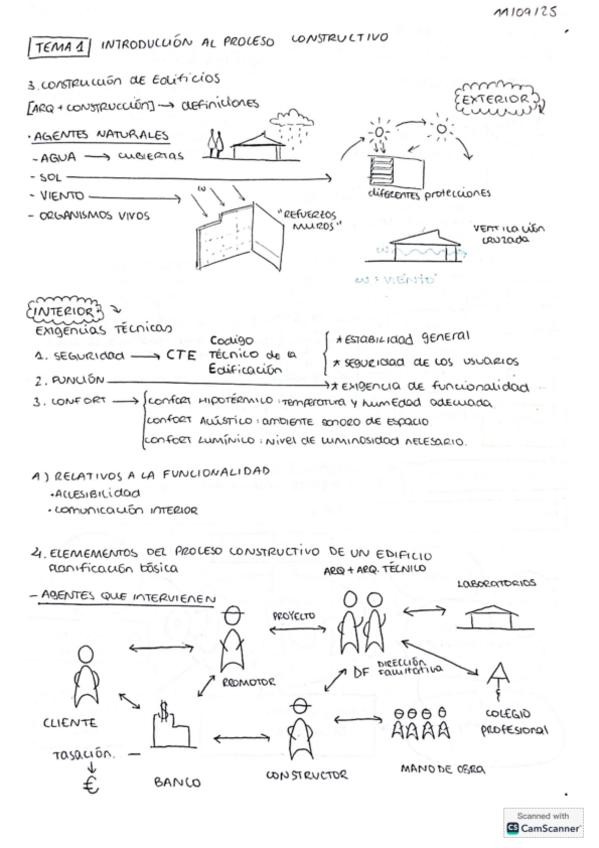 11/09/25
TEMA 1 INTRODUCCIÓN AL PROCESO CONSTRUCTIVO
3. CONSTRUCCIÓN DE EDIFICIOS
[ARQ + CONSTRUCCIÓN] → definiciones
EXTERIOR
· AGENTES NATURALES
- AGUA → CUBIERTAS
- SOL →
diferentes protecciones
- VIENTO →
- ORGANISMOS VIVOS
ω
"REFUERZOS MUROS"
VENTILACIÓN CRUZADA
ω
ω = VIENTO
INTERIOR
EXIGENCIAS TÉCNICAS
1. SEGURIDAD → CTE Código Técnico de la Edificación
* ESTABILIDAD general
* SEGURIDAD DE LOS USUARIOS
2. FUNCIÓN → * EXIGENCIA DE FUNCIONALIDAD
3. CONFORT → confort HIPOTÉRMICO : Temperatura y humedad adecuada
confort Acústico : ambiente sonoro de espacio
confort Lumínico : Nivel de luminosidad necesario.
A) RELATIVOS A LA FUNCIONALIDAD
· ACCESIBILIDAD
· COMUNICACIÓN INTERIOR
4. ELEMEMENTOS DEL PROCESO CONSTRUCTIVO DE UN EDIFICIO
Planificación básica
ARQ + ARQ. TÉCNICO
- AGENTES QUE INTERVIENEN
LABORATORIOS
PROYECTO
PROMOTOR
DF DIRECCIÓN facultativa
CLIENTE
$
COLEGIO profesional
Tasación. -
↓
€
BANCO
CONSTRUCTOR
MANO DE OBRA
Scanned with
CS CamScanner